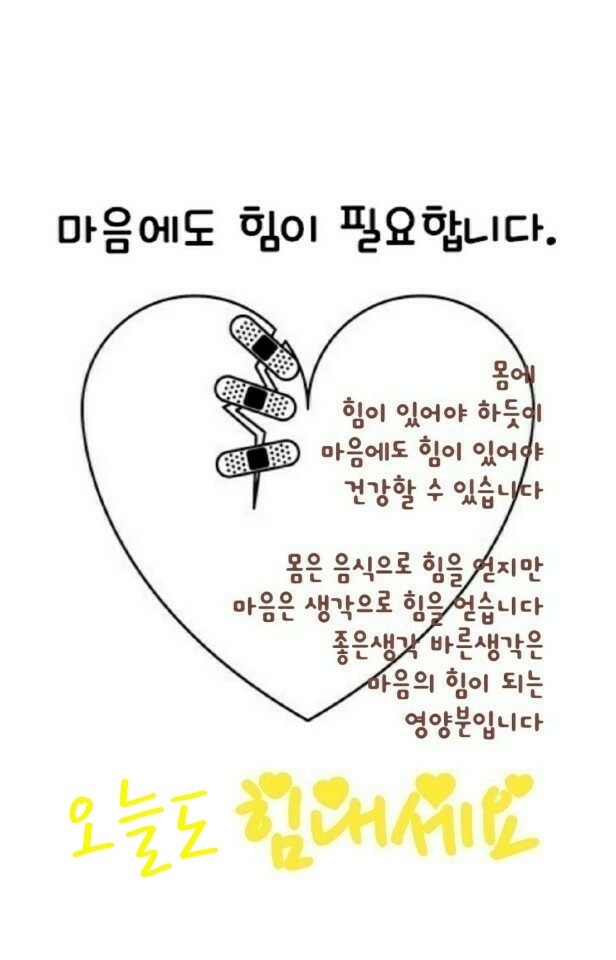 마음에도 힘이 필요합니다.
몸에
힘이 있어야 하듯이
마음에도 힘이 있어야
건강할 수 있습니다
몸은 음식으로 힘을 얻지만
마음은 생각으로 힘을 얻습니다
좋은생각 바른생각은
마음의 힘이 되는
영양분입니다
오늘도 힘내세요